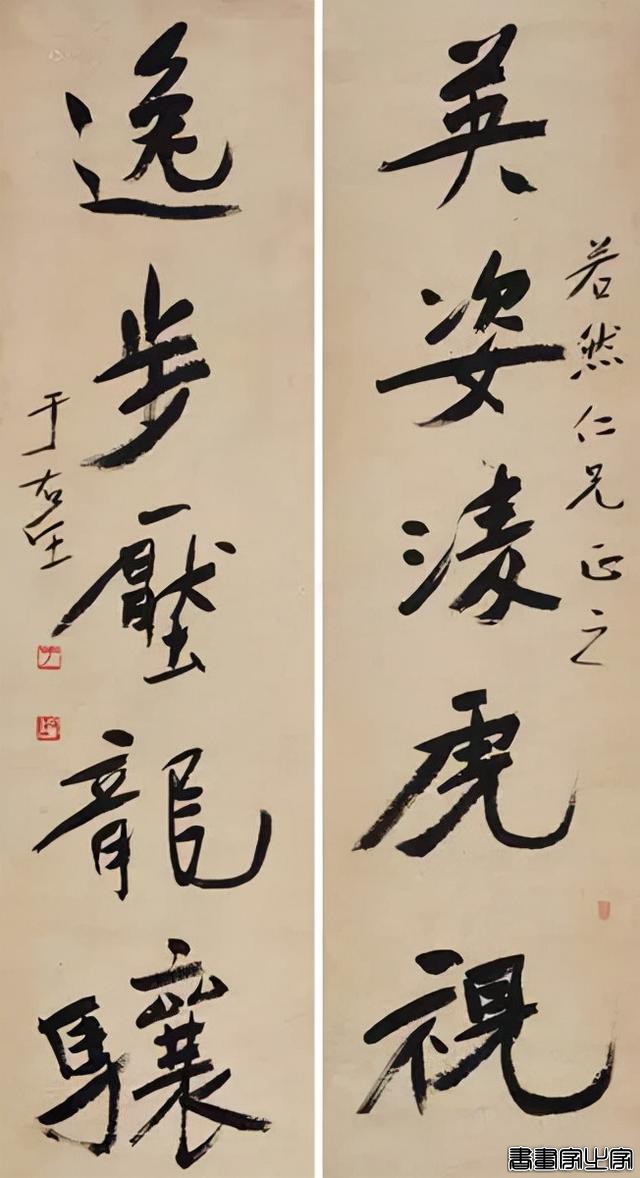 英姿凌虎視
若然仁兄正之
逸步壓龍驤
于右任
書畫家之家